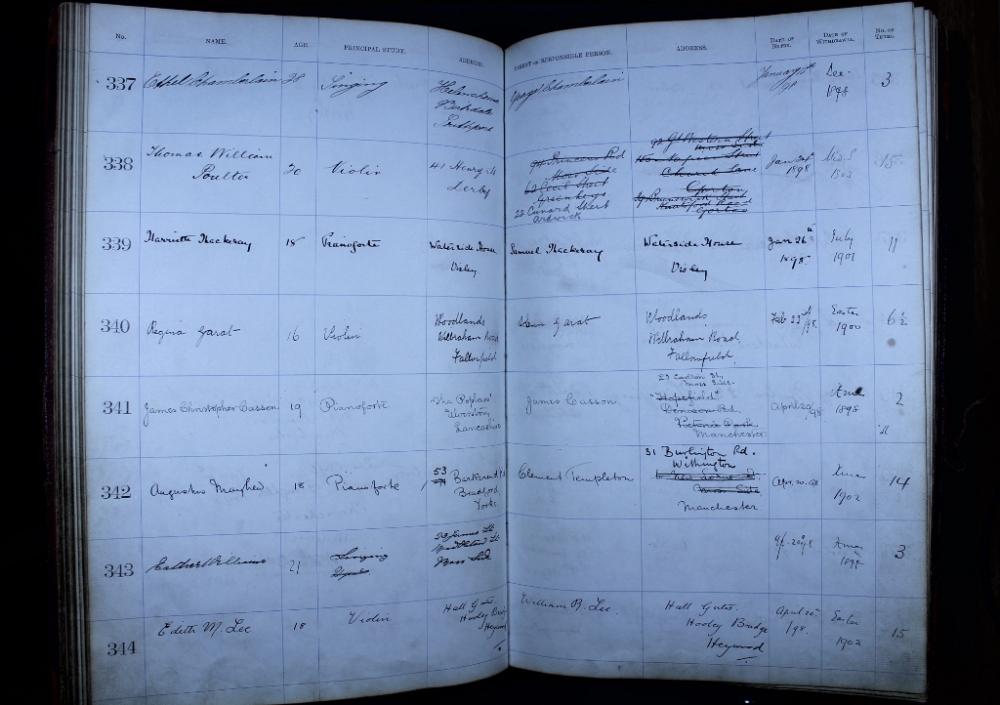 No. NAME. AGE. PRINCIPAL STUDY. ADDRESS. PARENT OR RESPONSIBLE PERSON. ADDRESS. DATE OF ENTRY. DATE OF WITHDRAWAL. No. OF TERMS.
337 Ethel Chamberlain 28 Singing
Birkdale
Southport
Chamberlain
Dec.
1898
3
338 Thomas William
Poulter
20 Violin 41 Henry St
Derby
Princess Rd
Moss Side
Cecil Street
Greenheys
22 Cunard Street
Ardwick
Gt Western Street
Moss Side
Jan
1898
Mids.
1902
15
339 Harriette Thackeray 18 Pianoforte Waterside House
Disley
Samuel Thackeray Waterside House
Disley
Jan 26th
1898
July
1901
11
340 Regina Garat 16 Violin Woodlands
Wilbraham Road
Fallowfield
Garat Woodlands
Wilbraham Road,
Fallowfield.
Feb 22nd /98
Easter
1900
6½
341 James Christopher Casson 19 Pianoforte The Poplars
Urmston,
Lancashire
James Casson
Moss Side.
"Hopefield"
Victoria Park
Manchester
April 20/98
Xmas
1898
2
342 Augustus Mayhew 18 Pianoforte 53
Bradford
Yorks
Clement Templeton 31 Burlington Rd.
Withington
Moss Side
Manchester
Apr. 20. 98
Xmas
1902
14
343 Esther Williams 21 Singing
Moss Side
Ap. 20 98
Xmas
1898
3
344 Edith M. Lee 18 Violin Hall Gates.
Hooley Bridge
Heywood
William B. Lee. Hall Gates.
Hooley Bridge
Heywood
April 20
/98.
Easter
1903
15